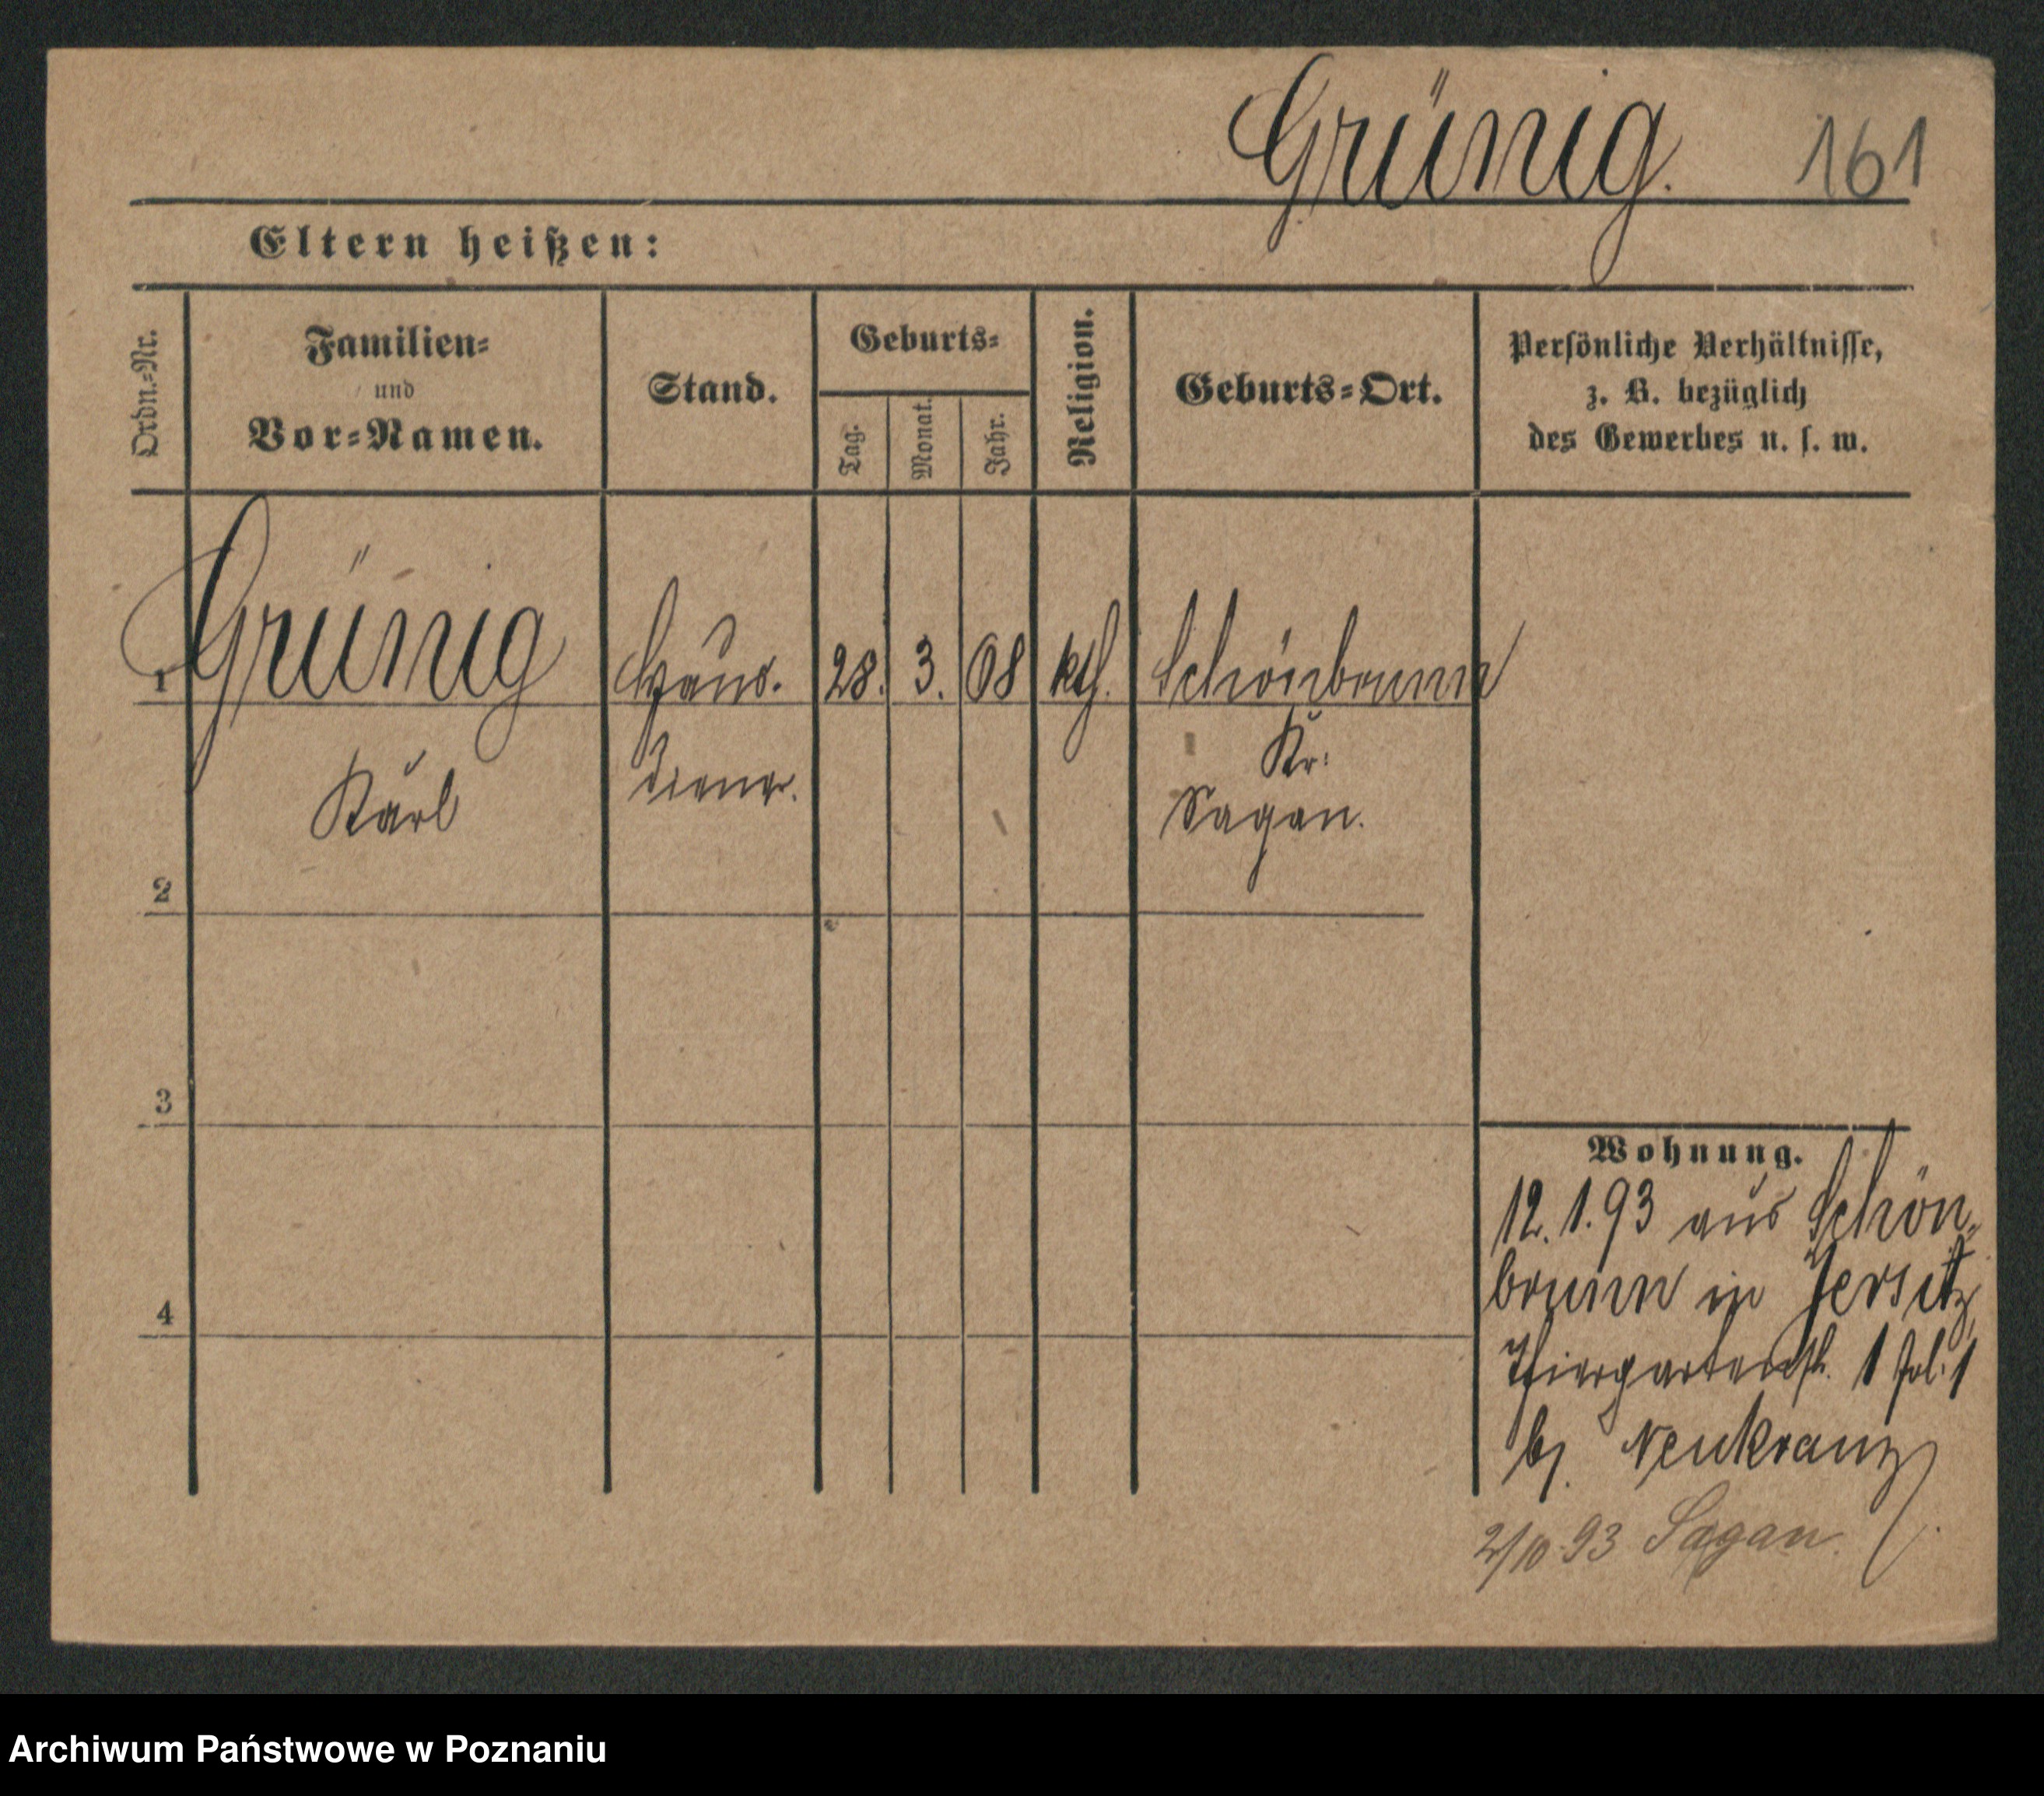 Grünig. 161
Eltern heißen:
Ordn.-Nr.
Familien-
und
Vor-Namen.
Stand.
Geburts-
Tag.
Monat.
Jahr.
Religion.
Geburts-Ort.
Persönliche Verhältnisse,
z. B. bezüglich
des Gewerbes u. s. w.
1 Grünig Haus- 28. 3. 68 kth. Schönbrunn
Karl diener. Kr.
Sagan.
2
3
4
Wohnung.
12. 1. 93 aus Schön-
brunn in Jersitz
Thiergartenstr. 1 Pol. 1
bj. Neukranz
2/10 93 Sagan.
Archiwum Państwowe w Poznaniu